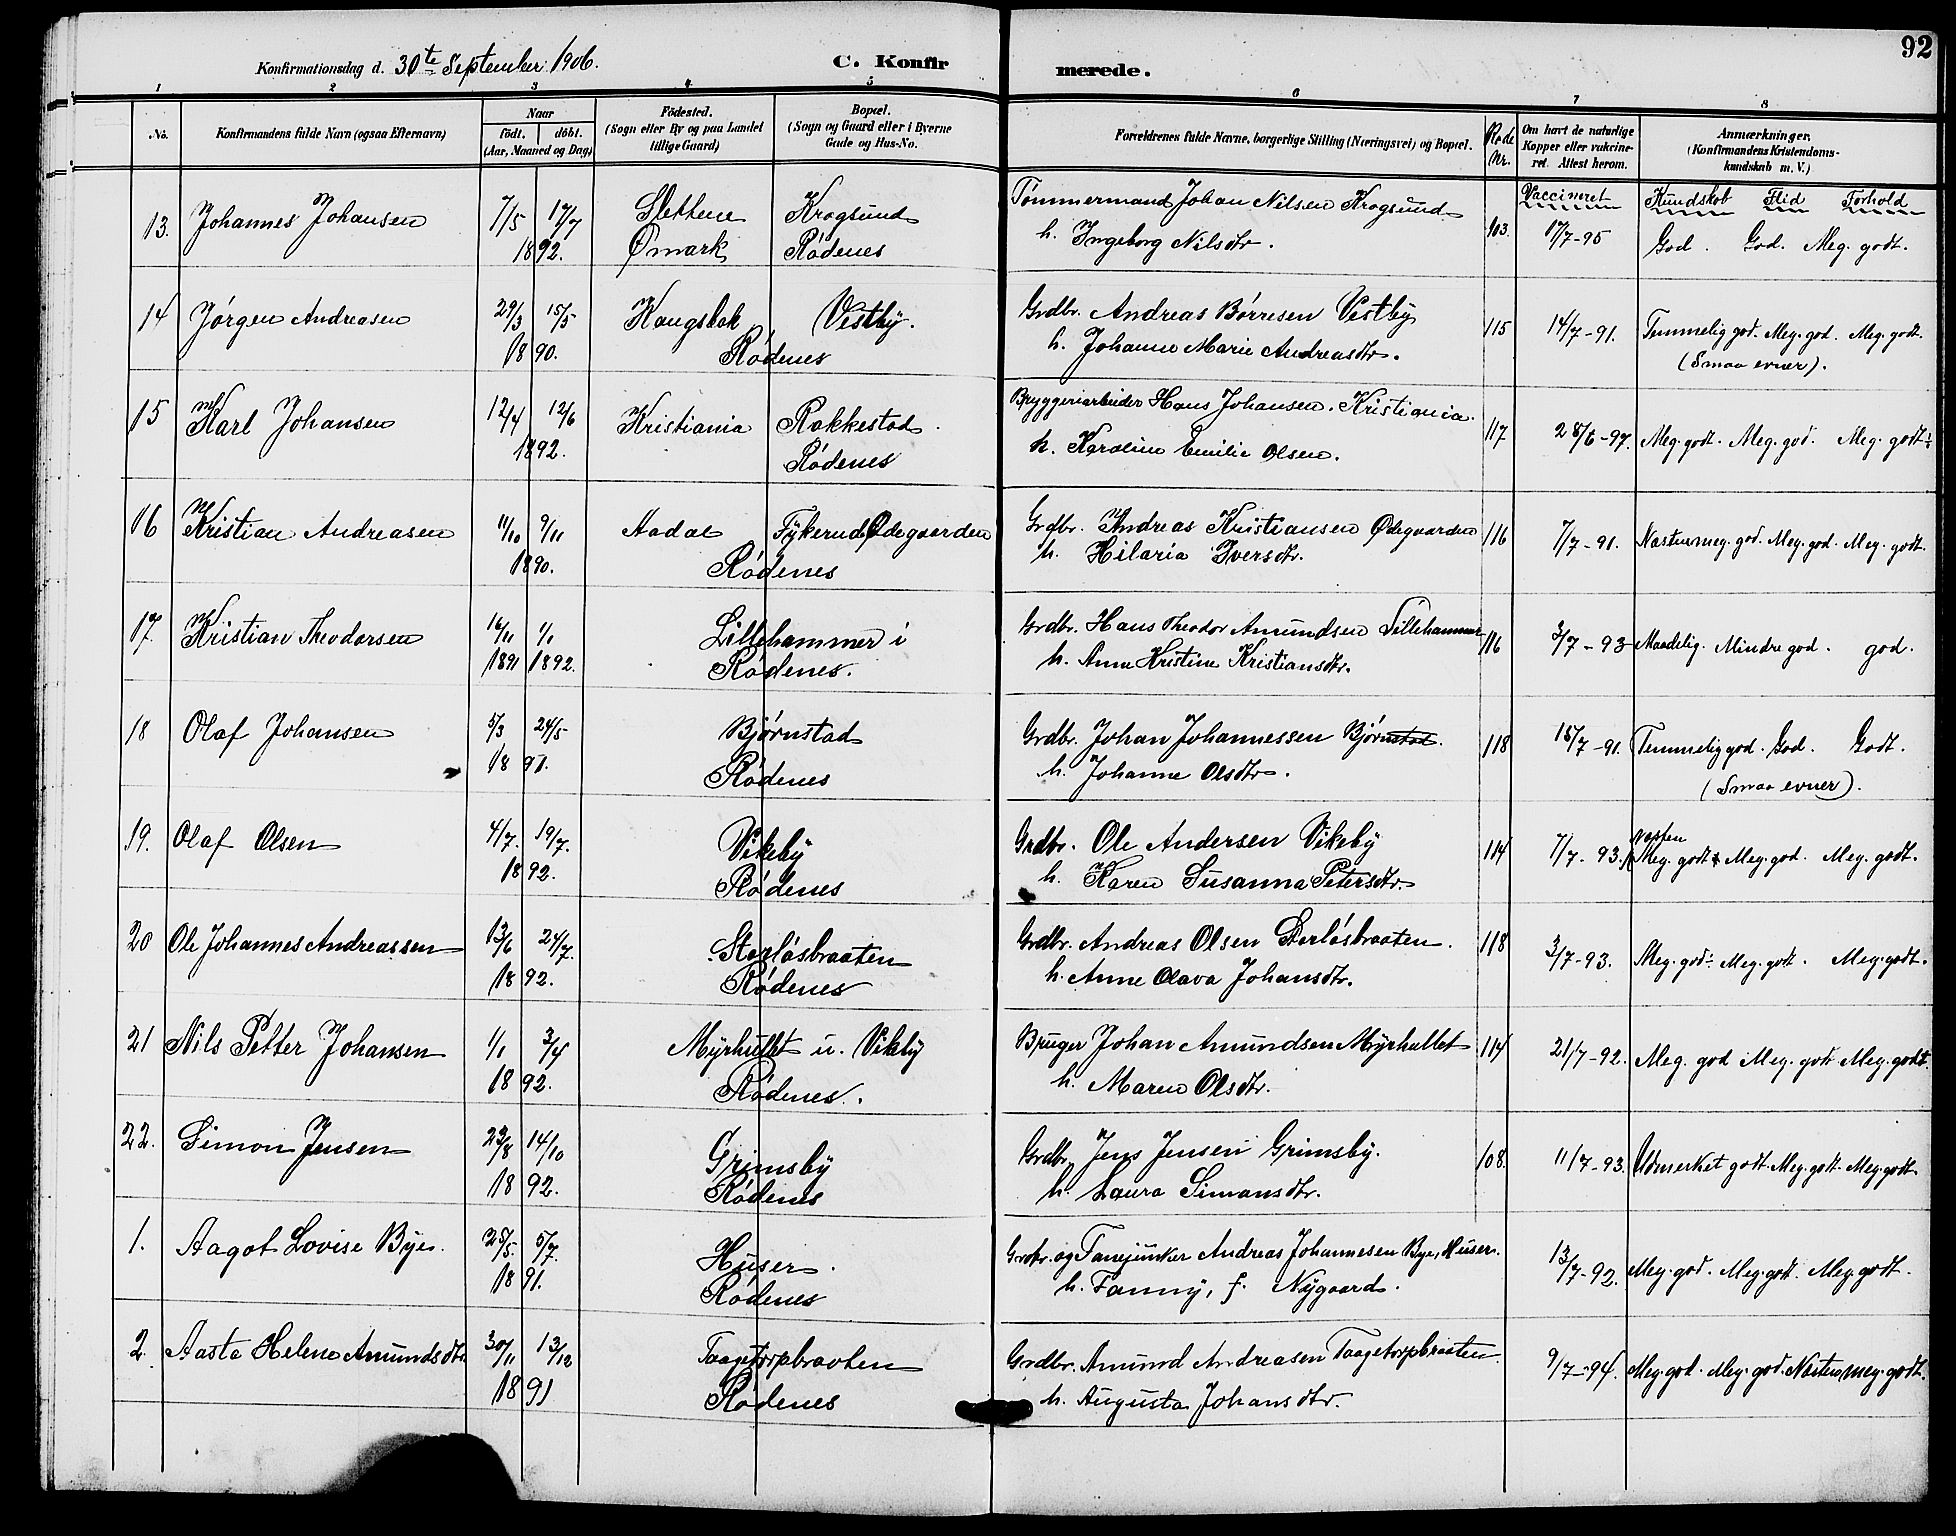 92
Konfirmationsdag d. 30te September 1906.
C. Konfirmerede.
1 2 3 4 5 6 7 8
No. Konfirmandens fulde Navn (ogsaa Efternavn) Naar født. døbt. (Aar, Maaned og Dag) Födested. (Sogn eller By og paa Landet tillige Gaard) Bopæl. (Sogn og Gaard eller i Byerne Gade og Hus-No. Forældrenes fulde Navne, borgerlige Stilling (Næringsvei) og Bopæl. Rode Nr. Om havt de naturlige Kopper eller vakcineret. Attest herom. Anmærkninger. (Konfirmandens Kristendomskundskab m. V.)
Vaccineret Kundskab Flid Forhold
13. Johannes Johansen 7/5 17/7 Slettene Krogsund Tømmermand Johan Nilsen Krogsund 103. 17/7-95 God. God. Meg. godt.
1892. Ømark Rødenes h. Ingeborg Nilsdtr.
14 Jørgen Andreasen 29/3 15/5 Vestby. Grdbr. Andreas Børresen Vestby 115 14/7-91. Temmelig god. Meg. god. Meg. godt.
1890. Rødenes h. Johanne Marie Andreasdtr. (Smaa evner).
15 Karl Johansen 12/4 12/6 Kristiania Rakkestad Bryggeriarbeider Hans Johansen. Kristiania. 117 28/6-97. Meg. godt. Meg. god. Meg. godt
1892. Rødenes h. Karoline Emilie Olsen.
16 Kristian Andreasen 11/10 9/11 Aadal Fykerud Ødegaarden Grdbr. Andreas Kristiansen Ødegaarden 116 7/7-91. Næsten meg. god. Meg. god. Meg. godt.
1890. Rødenes h. Hilaria Iversdtr.
17. Kristian Theodorsen 16/11 1/1 Lillehammer i Grdbr. Hans Theodor Amundsen Lillehammer 116 3/7-93 Maadelig. Mindre god. god.
1891 1892. Rødenes. h. Anne Kristine Kristiansdtr.
18 Olaf Johansen 5/3 24/5 Bjørnstad Grdbr. Johan Johannessen Bjørnstad. 118 15/7-91. Temmelig god. God. Godt.
1891. Rødenes h. Johanne Olsdtr. (Smaa evner).
19. Olaf Olsen 4/7. 19/7. Vikeby Grdbr. Ole Andersen Vikeby 114 7/7-93. Næsten Meg. godt Meg. god. Meg. godt.
1892. Rødenes h. Karen Susanna Petersdtr.
20 Ole Johannes Andreassen 13/6 24/7. Storløsbraaten Grdbr. Andreas Olsen Storløsbraaten. 118 3/7-93. Meg. god. Meg. godt. Meg. godt.
1892. Rødenes h. Anne Olava Johansdtr.
21 Nils Petter Johansen 1/1 3/4 Myrhullet u. Vikeby Bruger Johan Amundsen Myrhullet 114 21/7-92. Meg. god Meg. godt Meg. godt.
1892. Rødenes. h. Maren Olsdtr.
22. Simon Jensen 23/8 14/10 Grimsby Grdbr. Jens Jensen Grimsby. 108. 11/7-93. Udmerket godt. Meg. godt. Meg. godt.
1892. Rødenes h. Laura Simonsdtr.
1. Aagot Lovise Bye. 25/5. 5/7. Huser. Grdbr. og Fanejunker Andreas Johannesen Bye, Huser. 13/7-92. Meg. god. Meg. godt. Meg. godt.
1891. Rødenes h. Fanny, f. Nygaard.
2. Aasta Helene Amundsdtr. 30/11 13/12 Taagetorpbraaten Grdbr. Amund Andreasen Taagetorpbraaten. 9/7-94. Meg. god. Meg. god. Næsten meg. godt.
1891 Rødenes h. Augusta Johansdtr.